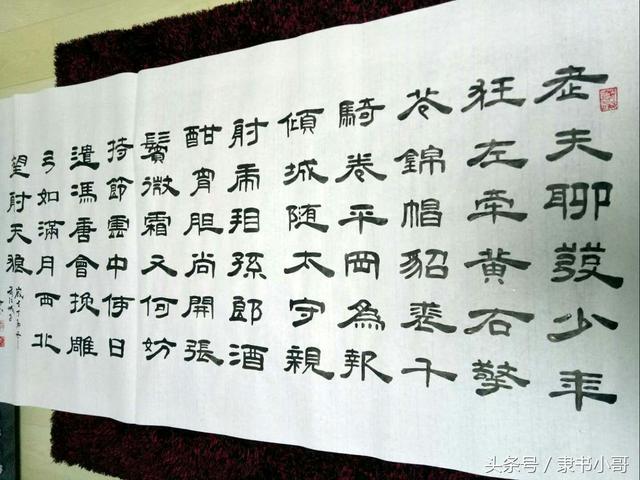 老夫聊發少年
狂左牽黃右擎
苍錦帽貂裘千
騎卷平岡為報
傾城随太守親
射虎相孫郎酒
酣胷胆尚開張
鬢微霜又何妨
持節雲中何日
遣馮唐會挽雕
弓如滿月西北
望射天狼
头条号/隶书小哥